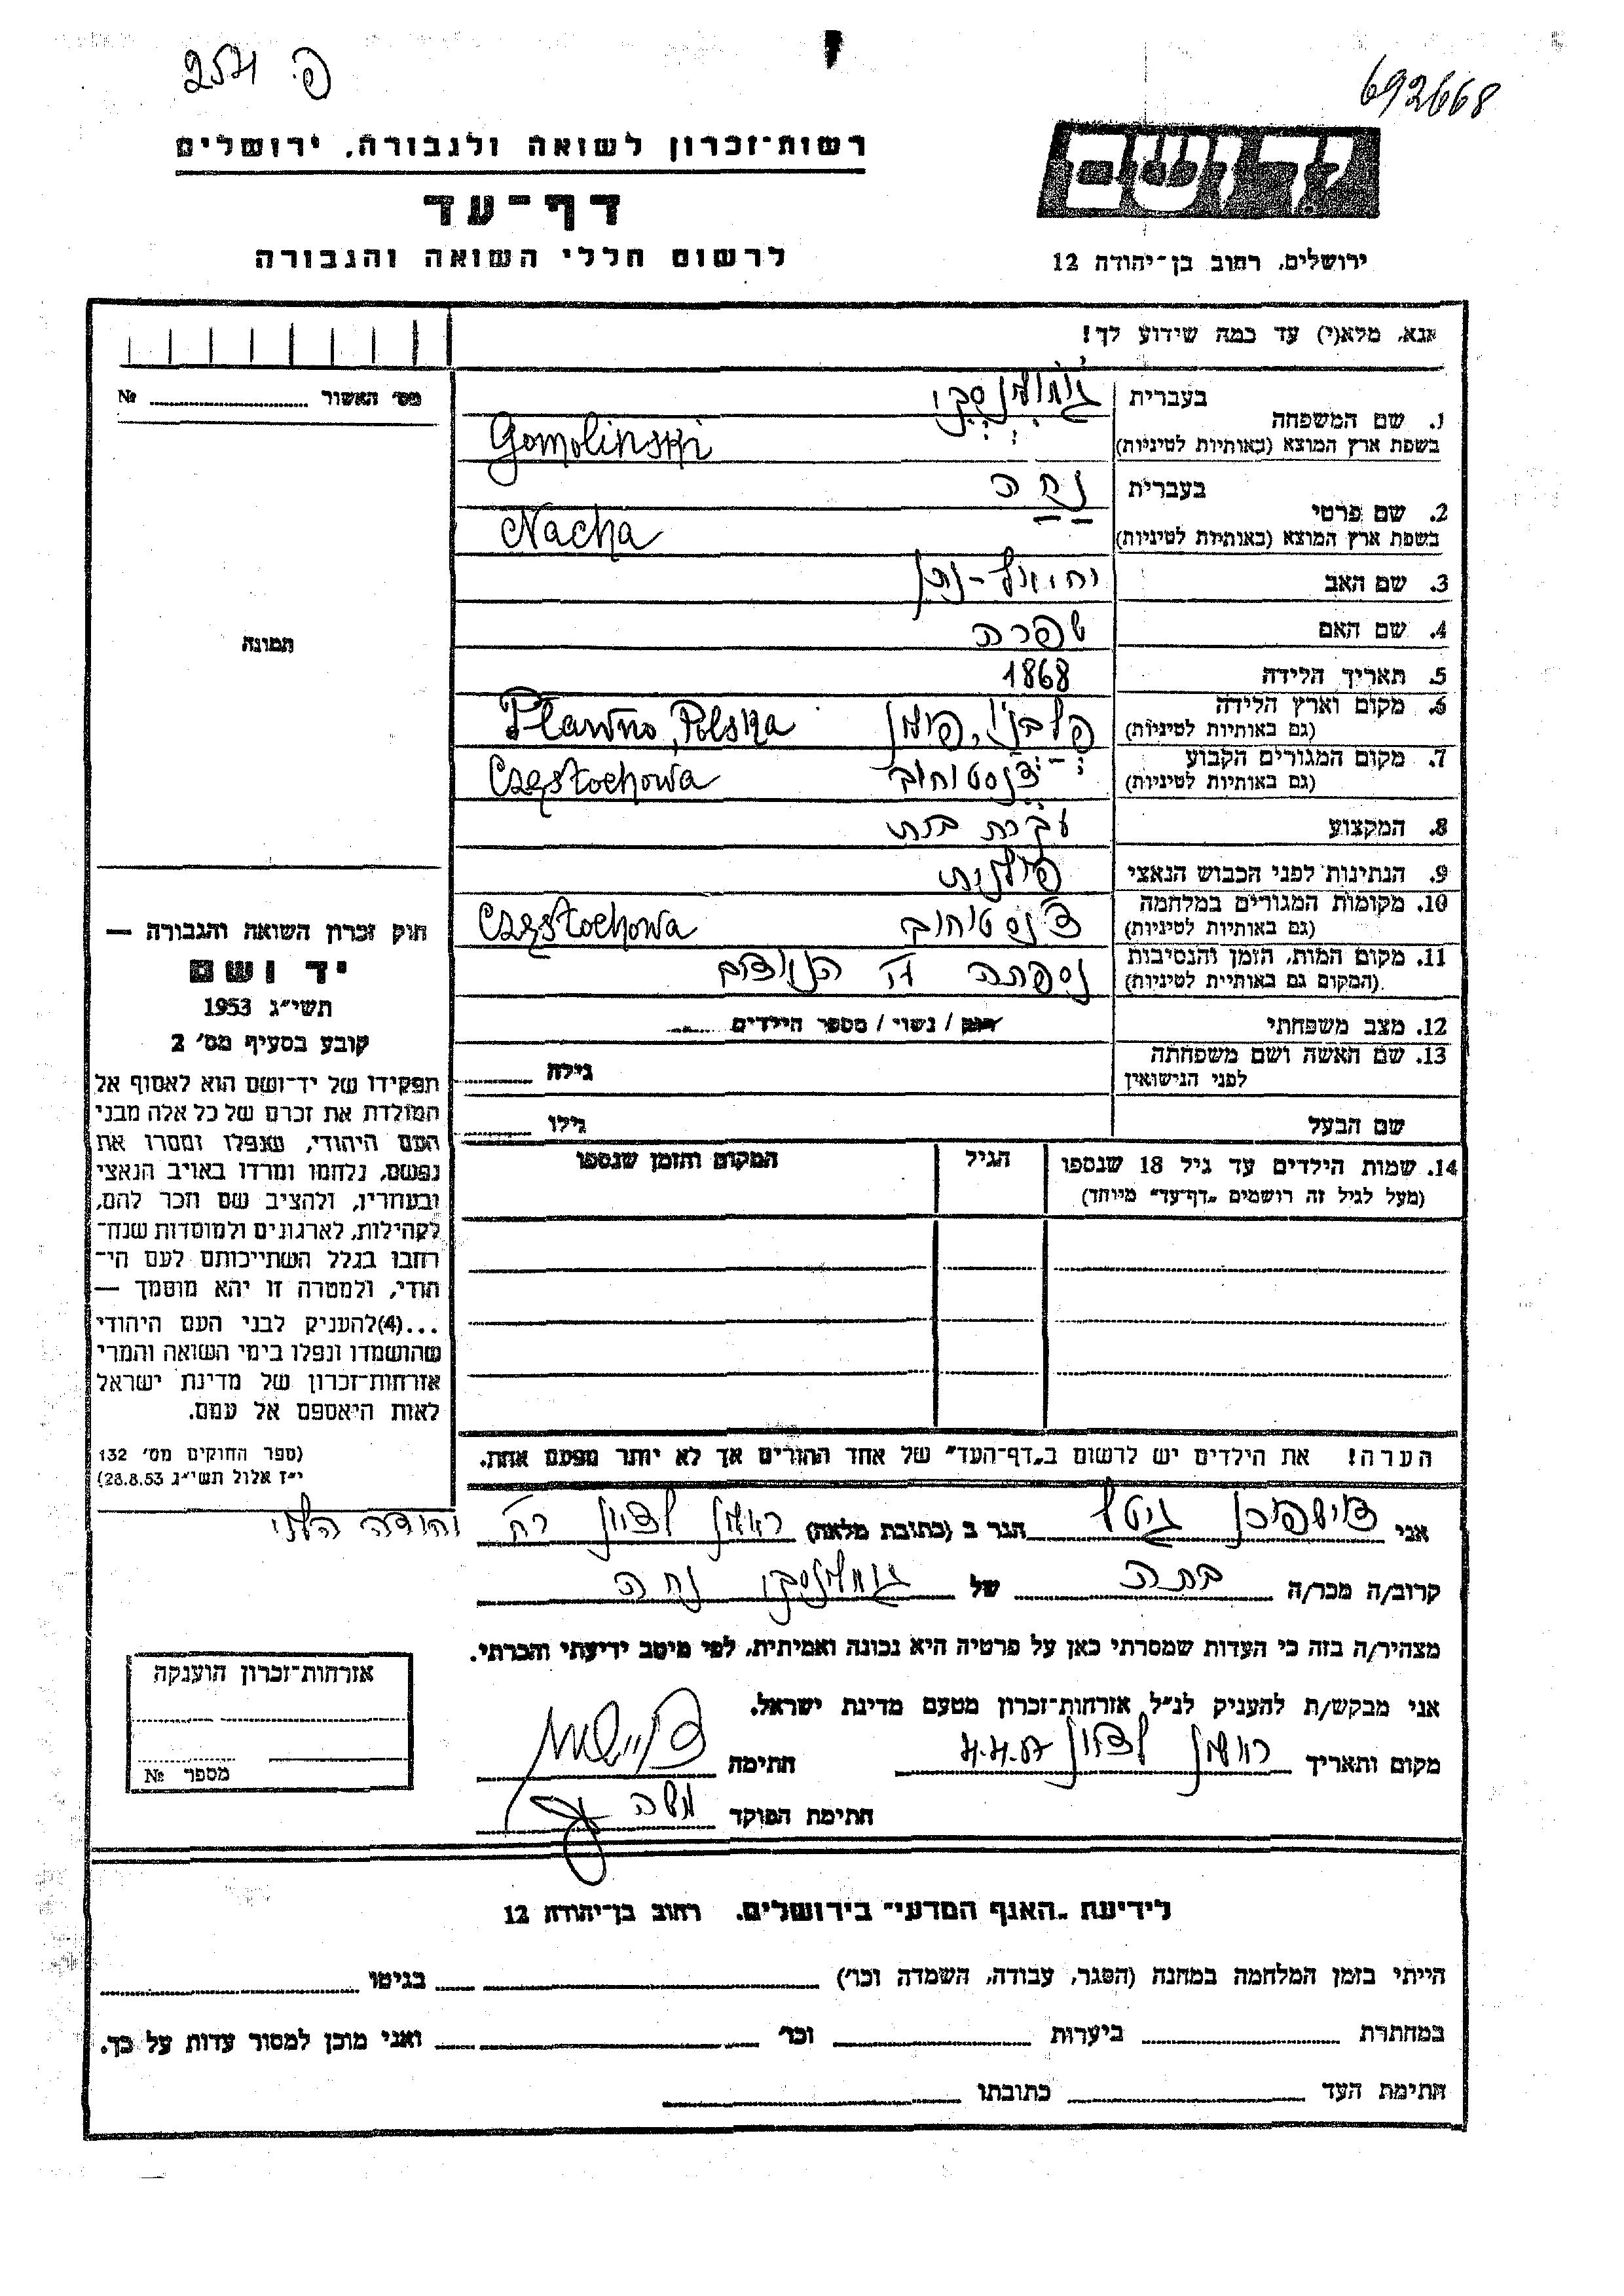 254 פ.
692668
רשות־זכרון לשואה ולגבורה, ירושלים
דף־עד
לרשום חללי השואה והגבורה
ירושלים, רחוב בן־יהודה 12
אנא, מלא(י) עד כמה שידוע לך!
מס׳ האשור №
1. שם המשפחה בעברית גומולינסקי
בשפת ארץ המוצא (באותיות לטיניות) Gomolinski
2. שם פרטי בעברית נחה
בשפת ארץ המוצא (באותיות לטיניות) Nacha
3. שם האב יחיאל-נתן
4. שם האם שפרה
5. תאריך הלידה 1868
6. מקום וארץ הלידה (גם באותיות לטיניות) פלבנו, פולין Pławno, Polska
7. מקום המגורים הקבוע (גם באותיות לטיניות) צ׳נסטוחוב Częstochowa
8. המקצוע עקרת בית
9. הנתינות לפני הכבוש הנאצי פולנית
10. מקומות המגורים במלחמה (גם באותיות לטיניות) צ׳נסטוחוב Częstochowa
11. מקום המות, הזמן והנסיבות (המקום גם באותיות לטיניות) נספתה
12. מצב משפחתי רווק / נשוי / מספר הילדים
13. שם האשה ושם משפחתה לפני הנישואין גילה
שם הבעל גילו
14. שמות הילדים עד גיל 18 שנספו (מעל לגיל זה רושמים „דף־עד״ מיוחד) הגיל המקום והזמן שנספו
הערה! את הילדים יש לרשום ב„דף־העד״ של אחד ההורים אך לא יותר מפעם אחת.
תמונה
חוק זכרון השואה והגבורה —
יד ושם
תשי״ג 1953
קובע בסעיף מס׳ 2
תפקידו של יד־ושם הוא לאסוף אל
המולדת את זכרם של כל אלה מבני
העם היהודי, שנפלו ומסרו את
נפשם, נלחמו ומרדו באויב הנאצי
ובעוזריו, ולהציב שם וזכר להם,
לקהילות, לארגונים ולמוסדות שנח־
רבו בגלל השתייכותם לעם הי־
הודי, ולמטרה זו יהא מוסמך —
...(4) להעניק לבני העם היהודי
שהושמדו ונפלו בימי השואה והמרי
אזרחות־זכרון של מדינת ישראל
לאות היאספם אל עמם.
(ספר החוקים מס׳ 132
י״ז אלול תשי״ג 28.8.53)
אני גיטל הגר ב (כתובת מלאה) ראשון לציון רח׳ יהודה הלוי
קרוב/ה מכר/ה בתה של גומולינסקי נחה
מצהיר/ה בזה כי העדות שמסרתי כאן על פרטיה היא נכונה ואמיתית, לפי מיטב ידיעתי והכרתי.
אני מבקש/ת להעניק לנ״ל אזרחות־זכרון מטעם מדינת ישראל.
מקום ותאריך ראשון לציון 4.4.57 חתימה
חתימת הפוקד משה
אזרחות־זכרון הוענקה
מספר №
לידיעת „האגף המדעי״ בירושלים, רחוב בן־יהודה 12
הייתי בזמן המלחמה במחנה (הסגר, עבודה, השמדה וכו׳) בגיטו
במחתרת ביערות וכו׳ ואני מוכן למסור עדות על כך.
חתימת העד כתובתו